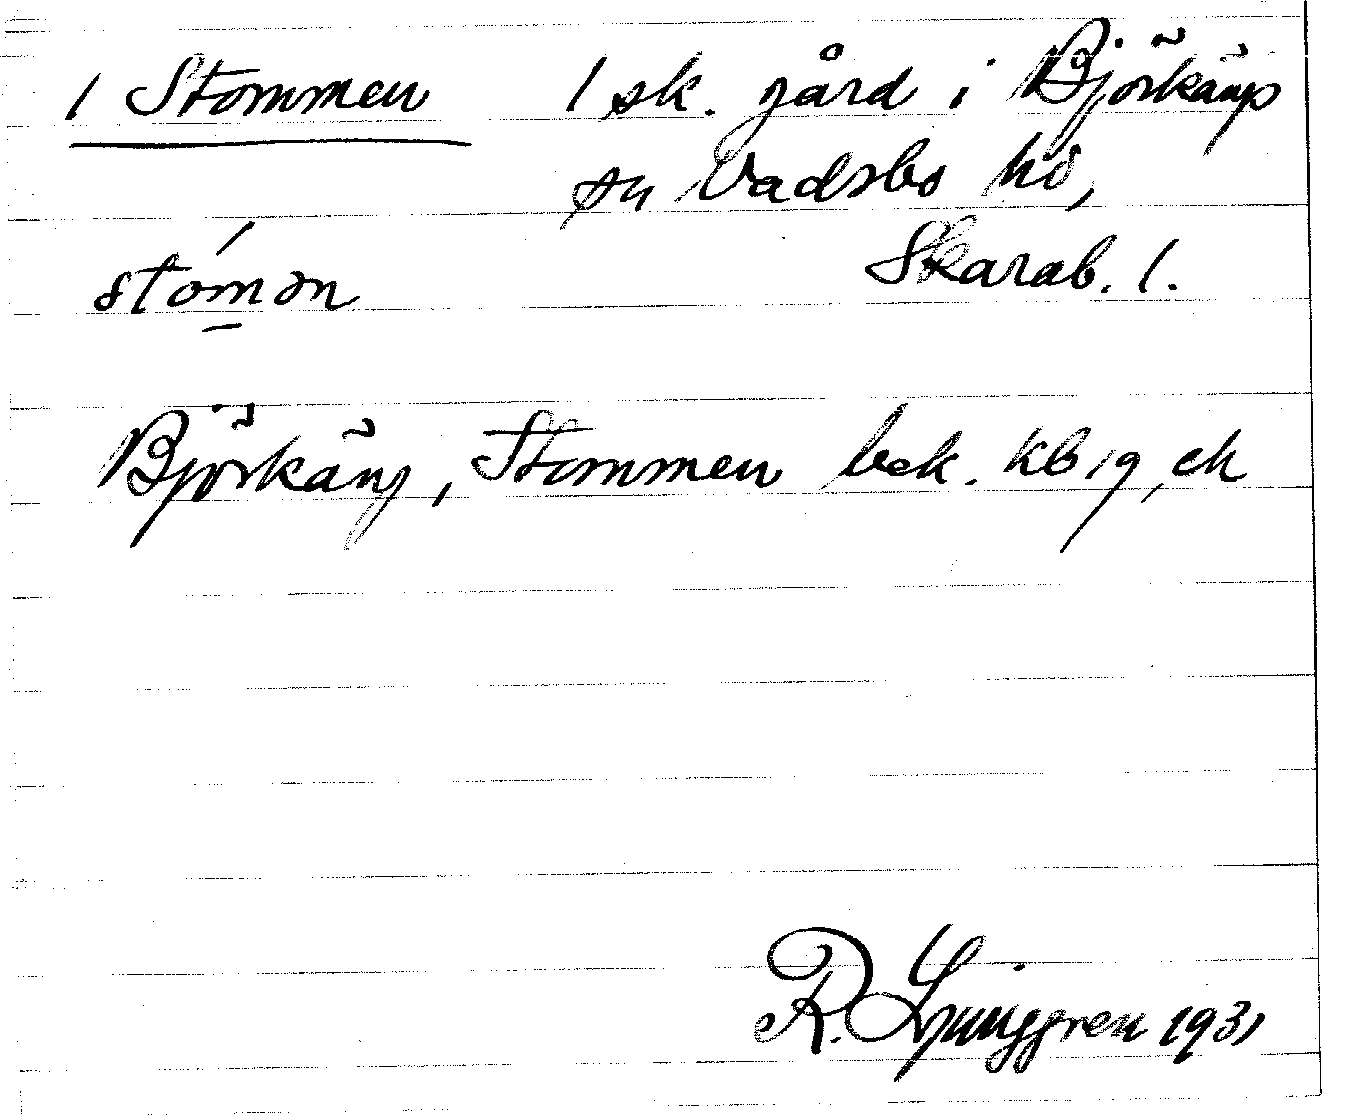 / Stommen 1 sk. gård i Björkäng
sn Vadsbo hd,
stómən Skarab. l.
Björkäng, Stommen bek. Kb 19,
R. Ljunggren 1931